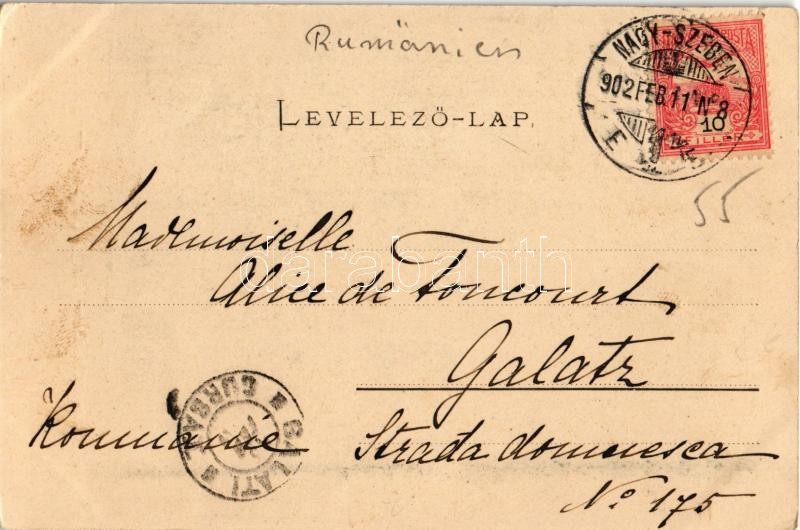 Rumänien
NAGY-SZEBEN
902 FEB. 11 N8
10
FILLÉR
LEVELEZŐ-LAP.
55
Mademoiselle
Alice de Foncourt
darabanth
Galatz
Roumanie
Strada domneasca
No 175
GALATI